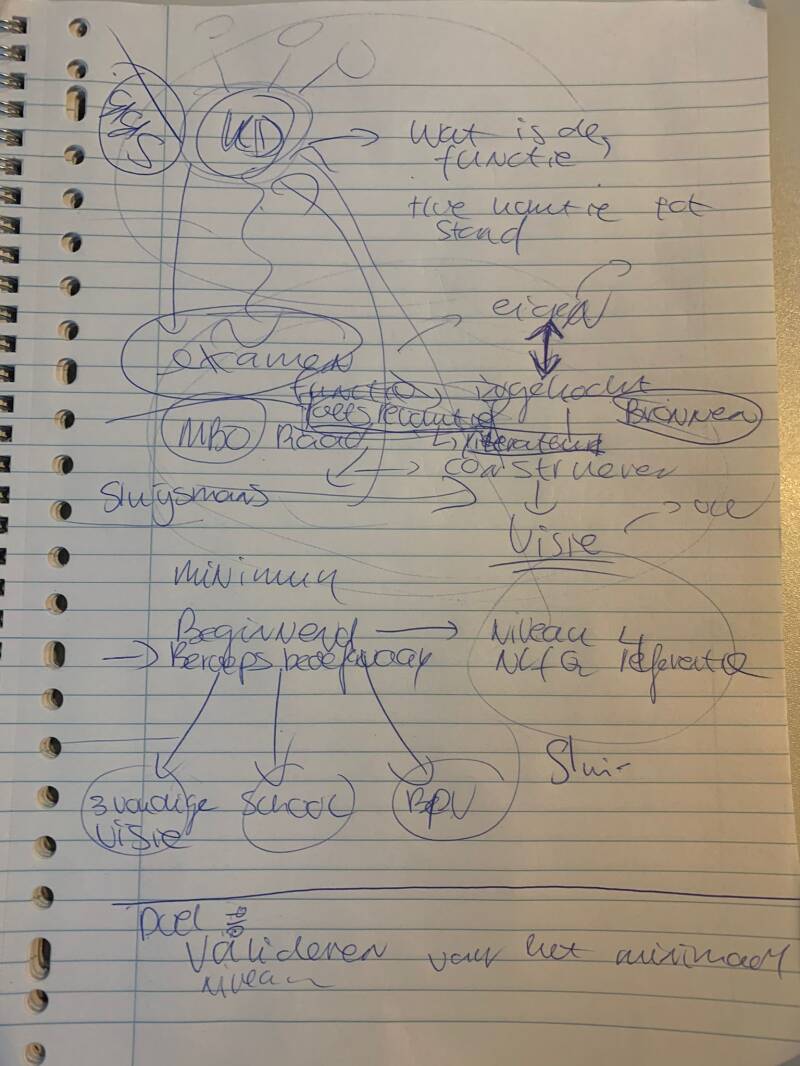 KD
wat is de
functie
Hoe komt ie tot
stand
eigen
examen
functie, ingekocht
Bronnen
MBO Raad
literatuur
construeren
Sluijsmans
Visie
minimum
Beginnend
Niveau 4
Beroeps
NLQF referentie
Slui-
3voudige School BPV
visie
Doel
Valideren van het minimaal
niveau